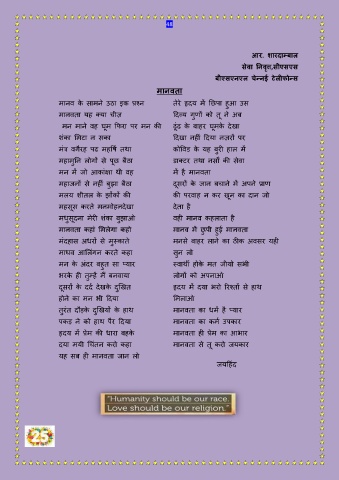 48
आर. शारदाम्बाल
सेवा निवृत्त,सीएसएस
बीएसएनएल चेन्नई टेलीफोन्स
मानवता
मानव के सामने उठा इक प्रश्न
मानवता यह क्या चीज़
मन माने वह घूम फिरा पर मन की
शंका मिटा न सका
मंत्र वगैरह पढ महर्षि तथा
महामुनि लोगों से पूछ बैठा
मन में जो आकांक्षा थी वह
महाजनों से नहीं बुझा बैठा
मलय शीतल के झोंकों की
महसूस करते मनमोहनदेखा
मधुसूदना मेरी शंका बुझाओ
मानवता कहां मिलेगा कहो
मंदहास अधरों से मुस्कुराते
माधव आलिंगन करते कहा
मन के अंदर बहुत सा प्यार
भरके ही तुम्हें मैं बनवाया
दूसरों के दर्द देखके दुखित
होने का मन भी दिया
तुरंत दौडके दुखियों के हाथ
पकड़ ने को हाथ पैर दिया
हृदय में प्रेम की धारा बहके
दया मयी चिंतन करो कहा
यह सब ही मानवता जान लो
तेरे हृदय में छिपा हुआ उस
दिव्य गुणों को तू ने अब
ढूंढ के बाहर घूमके देखा
दिखा नहीं दिया नजरों पर
कोविड के यह बुरी हाल में
डाक्टर तथा नर्सों की सेवा
में है मानवता
दूसरों के जान बचाने में अपने प्राण
की परवाह न कर खून का दान जो
देता है
वही मानव कहलाता है
मानव में छुपी हुई मानवता
मनसे बाहर लाने का ठीक अवसर यही
सुन लो
स्वार्थी होके मत जीयो सभी
लोगों को अपनाओ
हृदय में दया भरो रिश्तों से हाथ
मिलाओ
मानवता का धर्म है प्यार
मानवता का कर्म उपकार
मानवता ही प्रेम का आभार
मानवता से तू करो जयकार
जयहिंद
"Humanity should be our race.
Love should be our religion."
25